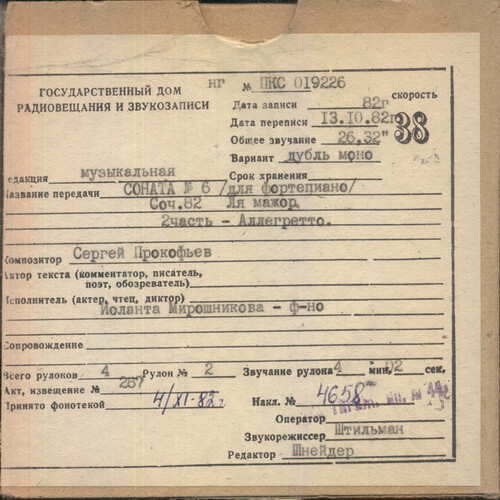 ГОСУДАРСТВЕННЫЙ ДОМ
РАДИОВЕЩАНИЯ И ЗВУКОЗАПИСИ
нг № ПКС 019226
Дата записи 82г скорость
Дата переписи 13.10.82г 38
Общее звучание 26.32"
Вариант дубль моно
едакция музыкальная Срок хранения
азвание передачи СОНАТА № 6 /для фортепиано/
Соч.82 Ля мажор.
2часть - Аллегретто.
Композитор Сергей Прокофьев
Автор текста (комментатор, писатель,
поэт, обозреватель)
Исполнитель (актер, чтец, диктор)
Иоланта Мирошникова - ф-но
Сопровождение
Всего рулонов 4 Рулон № 2 Звучание рулона 4 мин. 02 сек.
Акт, извещение № 287
Принято фонотекой 4/XI-82г Накл. № 4658
Оператор
Звукорежиссер Штильман
Редактор Шнейдер